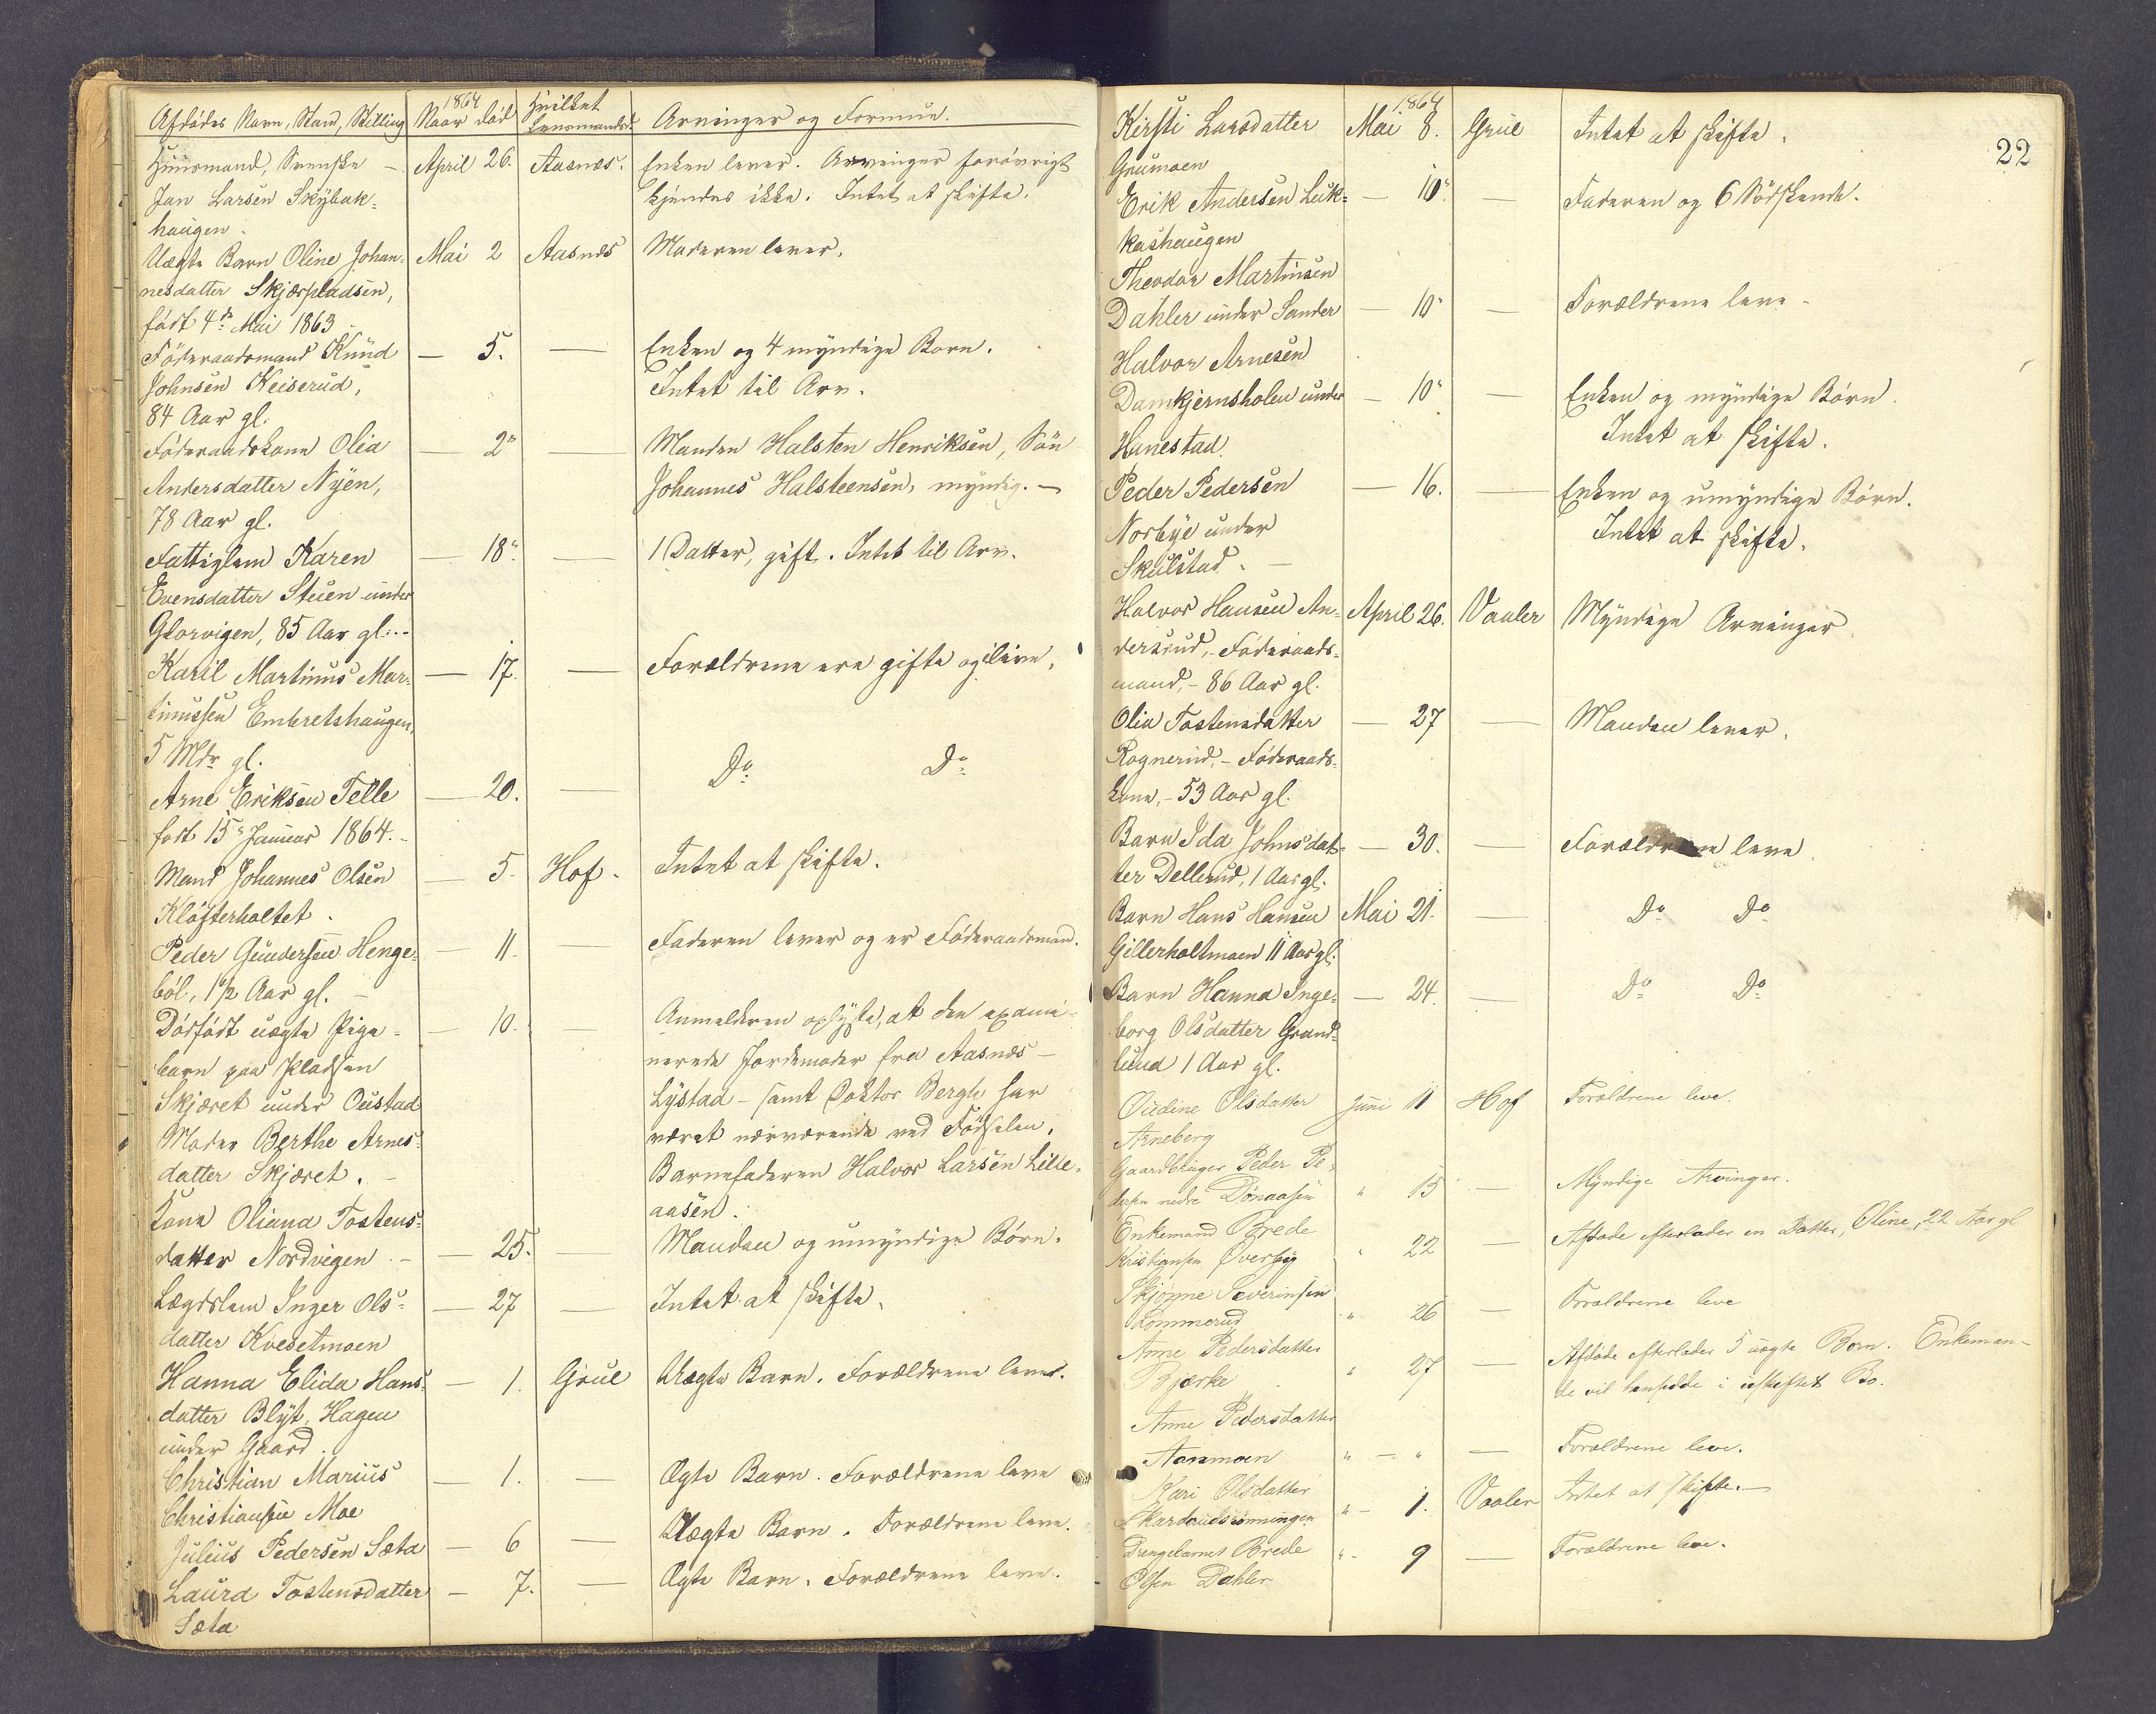 Afdødes Navn, Stand, Stilling | Naar død 1864 | Hvilket Lensmandsd. | Arvinger og Formue.
Huusmand, Svenske – | April 26. | Aasnæs. | Enken lever. Arvinger forøvrigt
Jan Larsen Skÿbak= | kjendes ikke. Intet at skifte.
haugen.
Uægte Barn Oline Johan= | Mai 2 | Aasnæs | Moderen lever.
nesdatter Skjærpladsen,
født 4de Mai 1863
Føderaadsmand Knud | — 5. | — | Enken og 4 myndige Børn.
Johnsen Keiserud, | Intet til Arv.
84 Aar gl.
Føderaadskone Olia | — 2" | — | Manden Halsten Henriksen, Søn
Andersdatter Nÿen, | Johannes Halsteensen, myndig. –
78 Aar gl.
Fattiglem Karen | — 18" | — | 1 Datter, gift. Intet til Arv.
Evensdatter Stuen under
Glorvigen, 85 Aar gl. –
Karil Martinus Mar= | — 17. | — | Forældrene ere gifte og ilive.
tinussen Embretshaugen,
5 Mdr gl.
Arne Eriksen Telle | — 20. | — | Do Do
født 15" Januar 1864. –
Mand Johannes Olsen | — 5. | Hof. | Intet at skifte.
Kløfterholtet.
Peder Gundersen Henge= | — 11. | — | Faderen lever og er Føderaadsmand.
ból, 1½ Aar gl. –
Dødfødt uægte Pige= | — 10. | — | Anmelderen oplyste, at den exami=
barn paa Pladsen | nerede Jordemoder fra Aasnæs –
Skjæret under Oustad | Lÿstad – samt Doktor Bergh har
Moder Berthe Arnes= | været nærværende ved Fødselen.
datter Skjæret. – | Barnefaderen Halvor Larsen Lille=
Kone Oliana Tostens= | aasen.
datter Nordvigen – | — 25. | — | Manden og umyndige Børn.
Lægdslem Inger Ols= | — 27 | — | Intet at skifte.
datter Kvesetmoen
Hanna Elida Hans= | — 1. | Grue | Uægte Barn. Forældrene lever.
datter Blÿt, Hagen
under Gaard.
Christian Marius | — 1. | — | Ægte Barn. Forældrene leve
Christiansen Moe
Julius Pedersen Sæta | — 6 | — | Uægte Barn. Forældrene leve.
Laura Tostensdatter | — 7. | — | Ægte Barn. Forældrene leve.
Sæta
22
1864
Kirsti Larsdatter | Mai 8. | Grue | Intet at skifte.
Grumoen
Erik Andersen Luk= | — 10" | — | Faderen og 6 Södskende.
kashaugen
Theodor Martinsen
Dahler under Sander | — 10" | — | Forældrene leve –
Halvor Arnesen
Damkjernsholen under | — 10" | — | Enken og myndige Børn.
Hanestad. | Intet at skifte.
Peder Pedersen | — 16. | — | Enken og umyndige Børn.
Norbÿe under | Intet at skifte.
Skulstad. –
Halvor Hansen An= | April 26. | Vaaler | Myndige Arvinger.
dersrud, – Føderaads=
mand, – 86 Aar gl.
Olia Tostensdatter | — 27 | — | Manden lever.
Rognerud, – Føderaads=
kone, – 53 Aar gl.
Barn Ida Johnsdat= | — 30. | — | Forældrene leve
ter Dellerud, 1 Aar gl.
Barn Hans Hansen | Mai 21. | — | Do Do
Gillerholtmoen 11 Aar gl.
Barn Hanna Inge= | — 24. | — | Do Do
borg Olsdatter Grand=
lund 1 Aar gl.
Oudine Olsdatter | Juni 11 | Hof | Forældrene leve.
Arneberg
Gaardbruger Peder Pe=
dersen nedre Dönaasen | " 15 | — | Myndige Arvinger.
Enkemand Brede
Kristiansen Øverby | " 22 | — | Afdøde efterlader en Datter, Oline, 22 Aar gl
Skjönne Severinsen
Lommerud | " 26 | — | Forældrene leve
Anne Pedersdatter
Bjerke | " 27 | — | Afdøde efterlader 5 uægte Børn. Enkeman-
de vil hensidde i uskiftet Bo.
Anne Pedersdatter
Aasmoen | " — " | — | Forældrene leve.
Kari Olsdatter
Skardaudsrønningen | " – 1. | Vaaler | Intet at skifte. –
Drengebarnet Brede
Olsen Dahler | " – 9 | — | Forældrene leve.